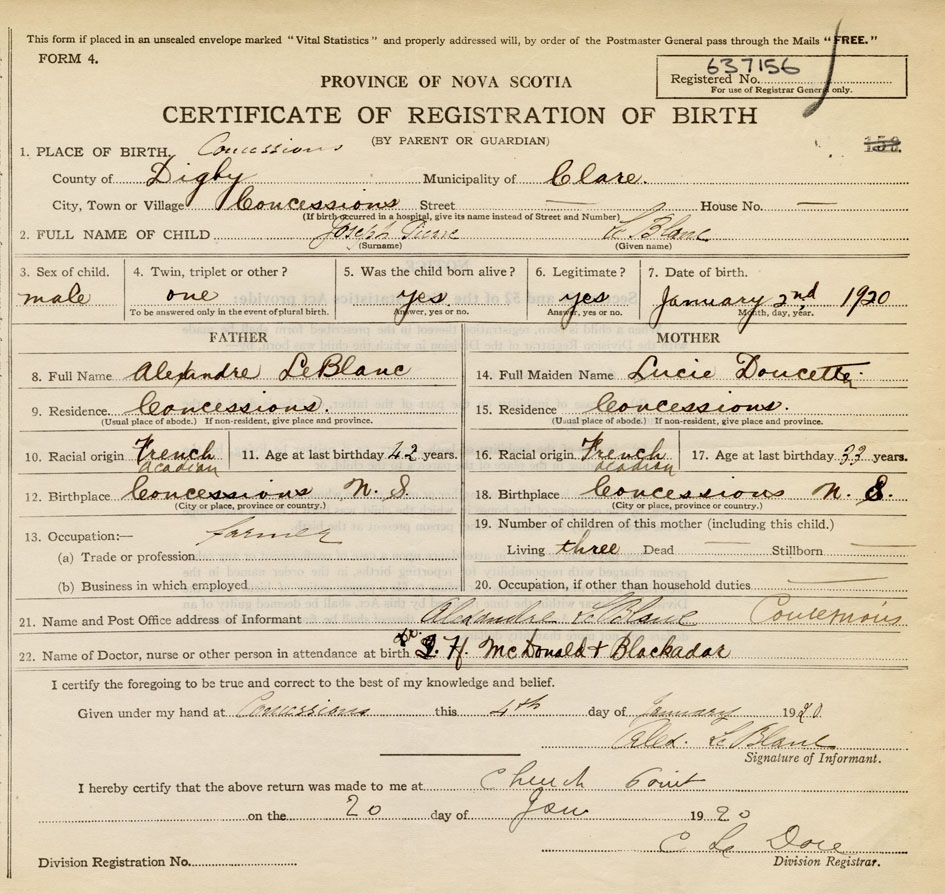 This form if placed in an unsealed envelope marked "Vital Statistics" and properly addressed will, by order of the Postmaster General pass through the Mails "FREE."
FORM 4.
637156
Registered No.
For use of Registrar General only.
PROVINCE OF NOVA SCOTIA
CERTIFICATE OF REGISTRATION OF BIRTH
(BY PARENT OR GUARDIAN)
159
1. PLACE OF BIRTH. Concessions
County of Digby Municipality of Clare.
City, Town or Village Concessions Street — House No. —
(If birth occurred in a hospital, give its name instead of Street and Number)
2. FULL NAME OF CHILD Joseph Pierre LeBlanc
(Surname) (Given name)
3. Sex of child. 4. Twin, triplet or other? 5. Was the child born alive? 6. Legitimate? 7. Date of birth.
male one yes yes January 2nd 1920
To be answered only in the event of plural birth. Answer, yes or no. Answer, yes or no. Month, day, year.
FATHER MOTHER
8. Full Name Alexandre LeBlanc 14. Full Maiden Name Lucie Doucette
9. Residence. Concessions. 15. Residence Concessions.
(Usual place of abode.) If non-resident, give place and province. (Usual place of abode.) If non-resident, give place and province.
10. Racial origin French 11. Age at last birthday 42 years. 16. Racial origin French 17. Age at last birthday 33 years.
acadian acadian
12. Birthplace Concessions N. S. 18. Birthplace Concessions N. S.
(City or place, province or country.) (City or place, province or country.)
13. Occupation:— farmer 19. Number of children of this mother (including this child.)
(a) Trade or profession Living three Dead — Stillborn —
(b) Business in which employed 20. Occupation, if other than household duties. —
21. Name and Post Office address of Informant Alexandre LeBlanc Concessions
22. Name of Doctor, nurse or other person in attendance at birth Drs. H. McDonald + Blackadar
I certify the foregoing to be true and correct to the best of my knowledge and belief.
Given under my hand at Concessions this 4th day of January 1920.
Alex. LeBlanc
Signature of Informant.
I hereby certify that the above return was made to me at Church Point
on the 20 day of Jan 1920
Division Registrar.
Division Registration No.